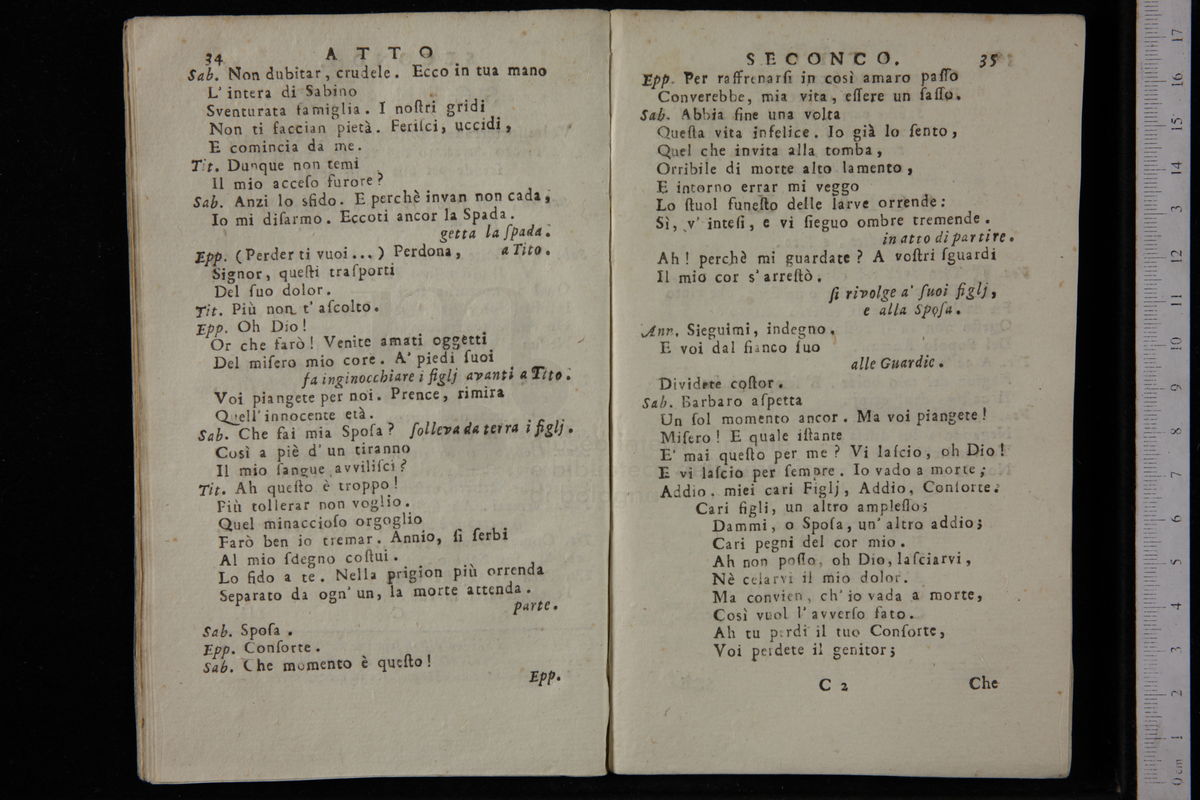 34 ATTO
Sab. Non dubitar, crudele. Ecco in tua mano
L' intera di Sabino
Sventurata famiglia. I noſtri gridi
Non ti faccian pietà. Feriſci, uccidi,
E comincia da me.
Tit. Dunque non temi
Il mio acceſo furore?
Sab. Anzi lo sfido. E perchè invan non cada,
Io mi diſarmo. Eccoti ancor la Spada.
getta la ſpada.
Epp. (Perder ti vuoi...) Perdona, a Tito.
Signor, queſti traſporti
Del ſuo dolor.
Tit. Più non t' aſcolto.
Epp. Oh Dio!
Or che farò! Venite amati oggetti
Del miſero mio core. A' piedi ſuoi
fa inginocchiare i figlj avanti a Tito.
Voi piangete per noi. Prence, rimira
Quell' innocente età.
Sab. Che fai mia Spoſa? ſolleva da terra i figlj.
Così a piè d' un tiranno
Il mio ſangue avviliſci?
Tit. Ah queſto è troppo!
Più tollerar non voglio.
Quel minaccioſo orgoglio
Farò ben io tremar. Annio, ſi ſerbi
Al mio ſdegno coſtui.
Lo fido a te. Nella prigion più orrenda
Separato da ogn' un, la morte attenda.
parte.
Sab. Spoſa.
Epp. Conſorte.
Sab. Che momento è queſto!
Epp.
SECONCO. 35
Epp. Per raffrenarſi in così amaro paſſo
Converebbe, mia vita, eſſere un ſaſſo.
Sab. Abbia fine una volta
Queſta vita infelice. Io già lo ſento,
Quel che invita alla tomba,
Orribile di morte alto lamento,
E intorno errar mi veggo
Lo ſtuol funeſto delle larve orrende:
Sì, v' inteſi, e vi ſieguo ombre tremende.
in atto di partire.
Ah! perchè mi guardate? A voſtri ſguardi
Il mio cor s' arreſtò.
ſi rivolge a' ſuoi figlj,
e alla Spoſa.
Ann. Sieguimi, indegno.
E voi dal fianco ſuo
alle Guardie.
Dividete coſtor.
Sab. Barbaro aſpetta
Un ſol momento ancor. Ma voi piangete!
Miſero! E quale iſtante
E' mai queſto per me? Vi laſcio, oh Dio!
E vi laſcio per ſempre. Io vado a morte;
Addio. miei cari Figlj, Addio, Conſorte.
Cari figli, un altro ampleſſo;
Dammi, o Spoſa, un' altro addio;
Cari pegni del cor mio.
Ah non poſſo, oh Dio, laſciarvi,
Nè celarvi il mio dolor.
Ma convien, ch' io vada a morte,
Così vuol l' avverſo fato.
Ah tu perdi il tuo Conſorte,
Voi perdete il genitor;
C 2 Che
0 cm 1 2 3 4 5 6 7 8 9 10 11 12 13 14 15 16 17